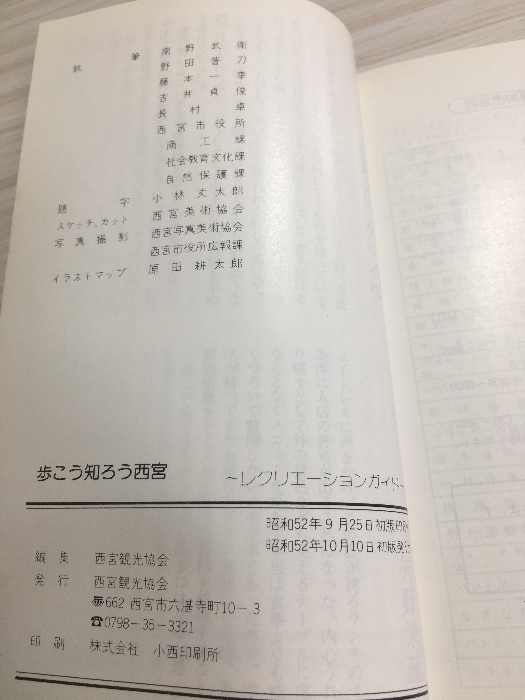 執筆 南野武衛
野田普刀
藤本一幸
吉井貞俊
長村卓
西宮市役所
商工課
社会教育文化課
自然保護課
題字 小林丈太郎
スケッチ、カット 西宮美術協会
写真撮影 西宮写真美術協会
西宮市役所広報課
イラストマップ 原田耕太郎
歩こう知ろう西宮 ～レクリエーションガイド～
昭和52年9月25日初版印刷
昭和52年10月10日初版発行
編集 西宮観光協会
発行 西宮観光協会
〠662 西宮市六湛寺町10－3
☎0798-35-3321
印刷 株式会社 小西印刷所